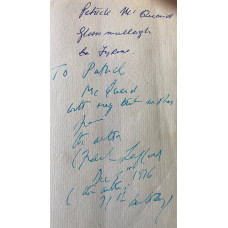 Patrick Mc Quaid
Glassmullagh
Co Tyrone.
To Patrick
Mc Quaid
with very best wishes
from
the author
Dec 2nd 1976
(the author's
71st birthday)